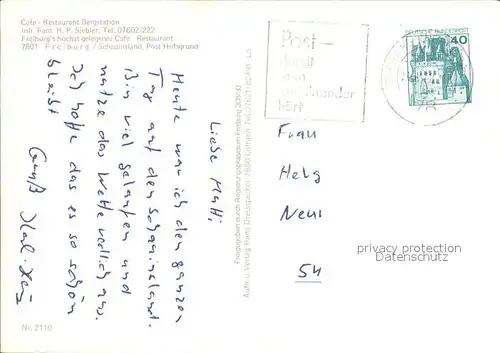 Cafe - Restaurant Bergstation
Inh. Fam. H. P. Siebler, Tel. 07602-222
Freiburg's höchst gelegenes Cafe - Restaurant
7801 Freiburg / Schauinsland, Post Hofsgrund
Liebe Mutti,
Heute war ich den ganzen
Tag auf den Schauinsland.
Bin viel gelaufen und
nutze das Wetter redlich aus.
Ich hoffe das es so schön
bleibt
Gruß
Freigegeben durch Regierungspräsidium Freiburg
Post –
damit
man
voneinander
hört
DEUTSCHE BUNDESPOST
40
Frau
Helg
Neu
54
privacy protection
Datenschutz
Nr. 2110